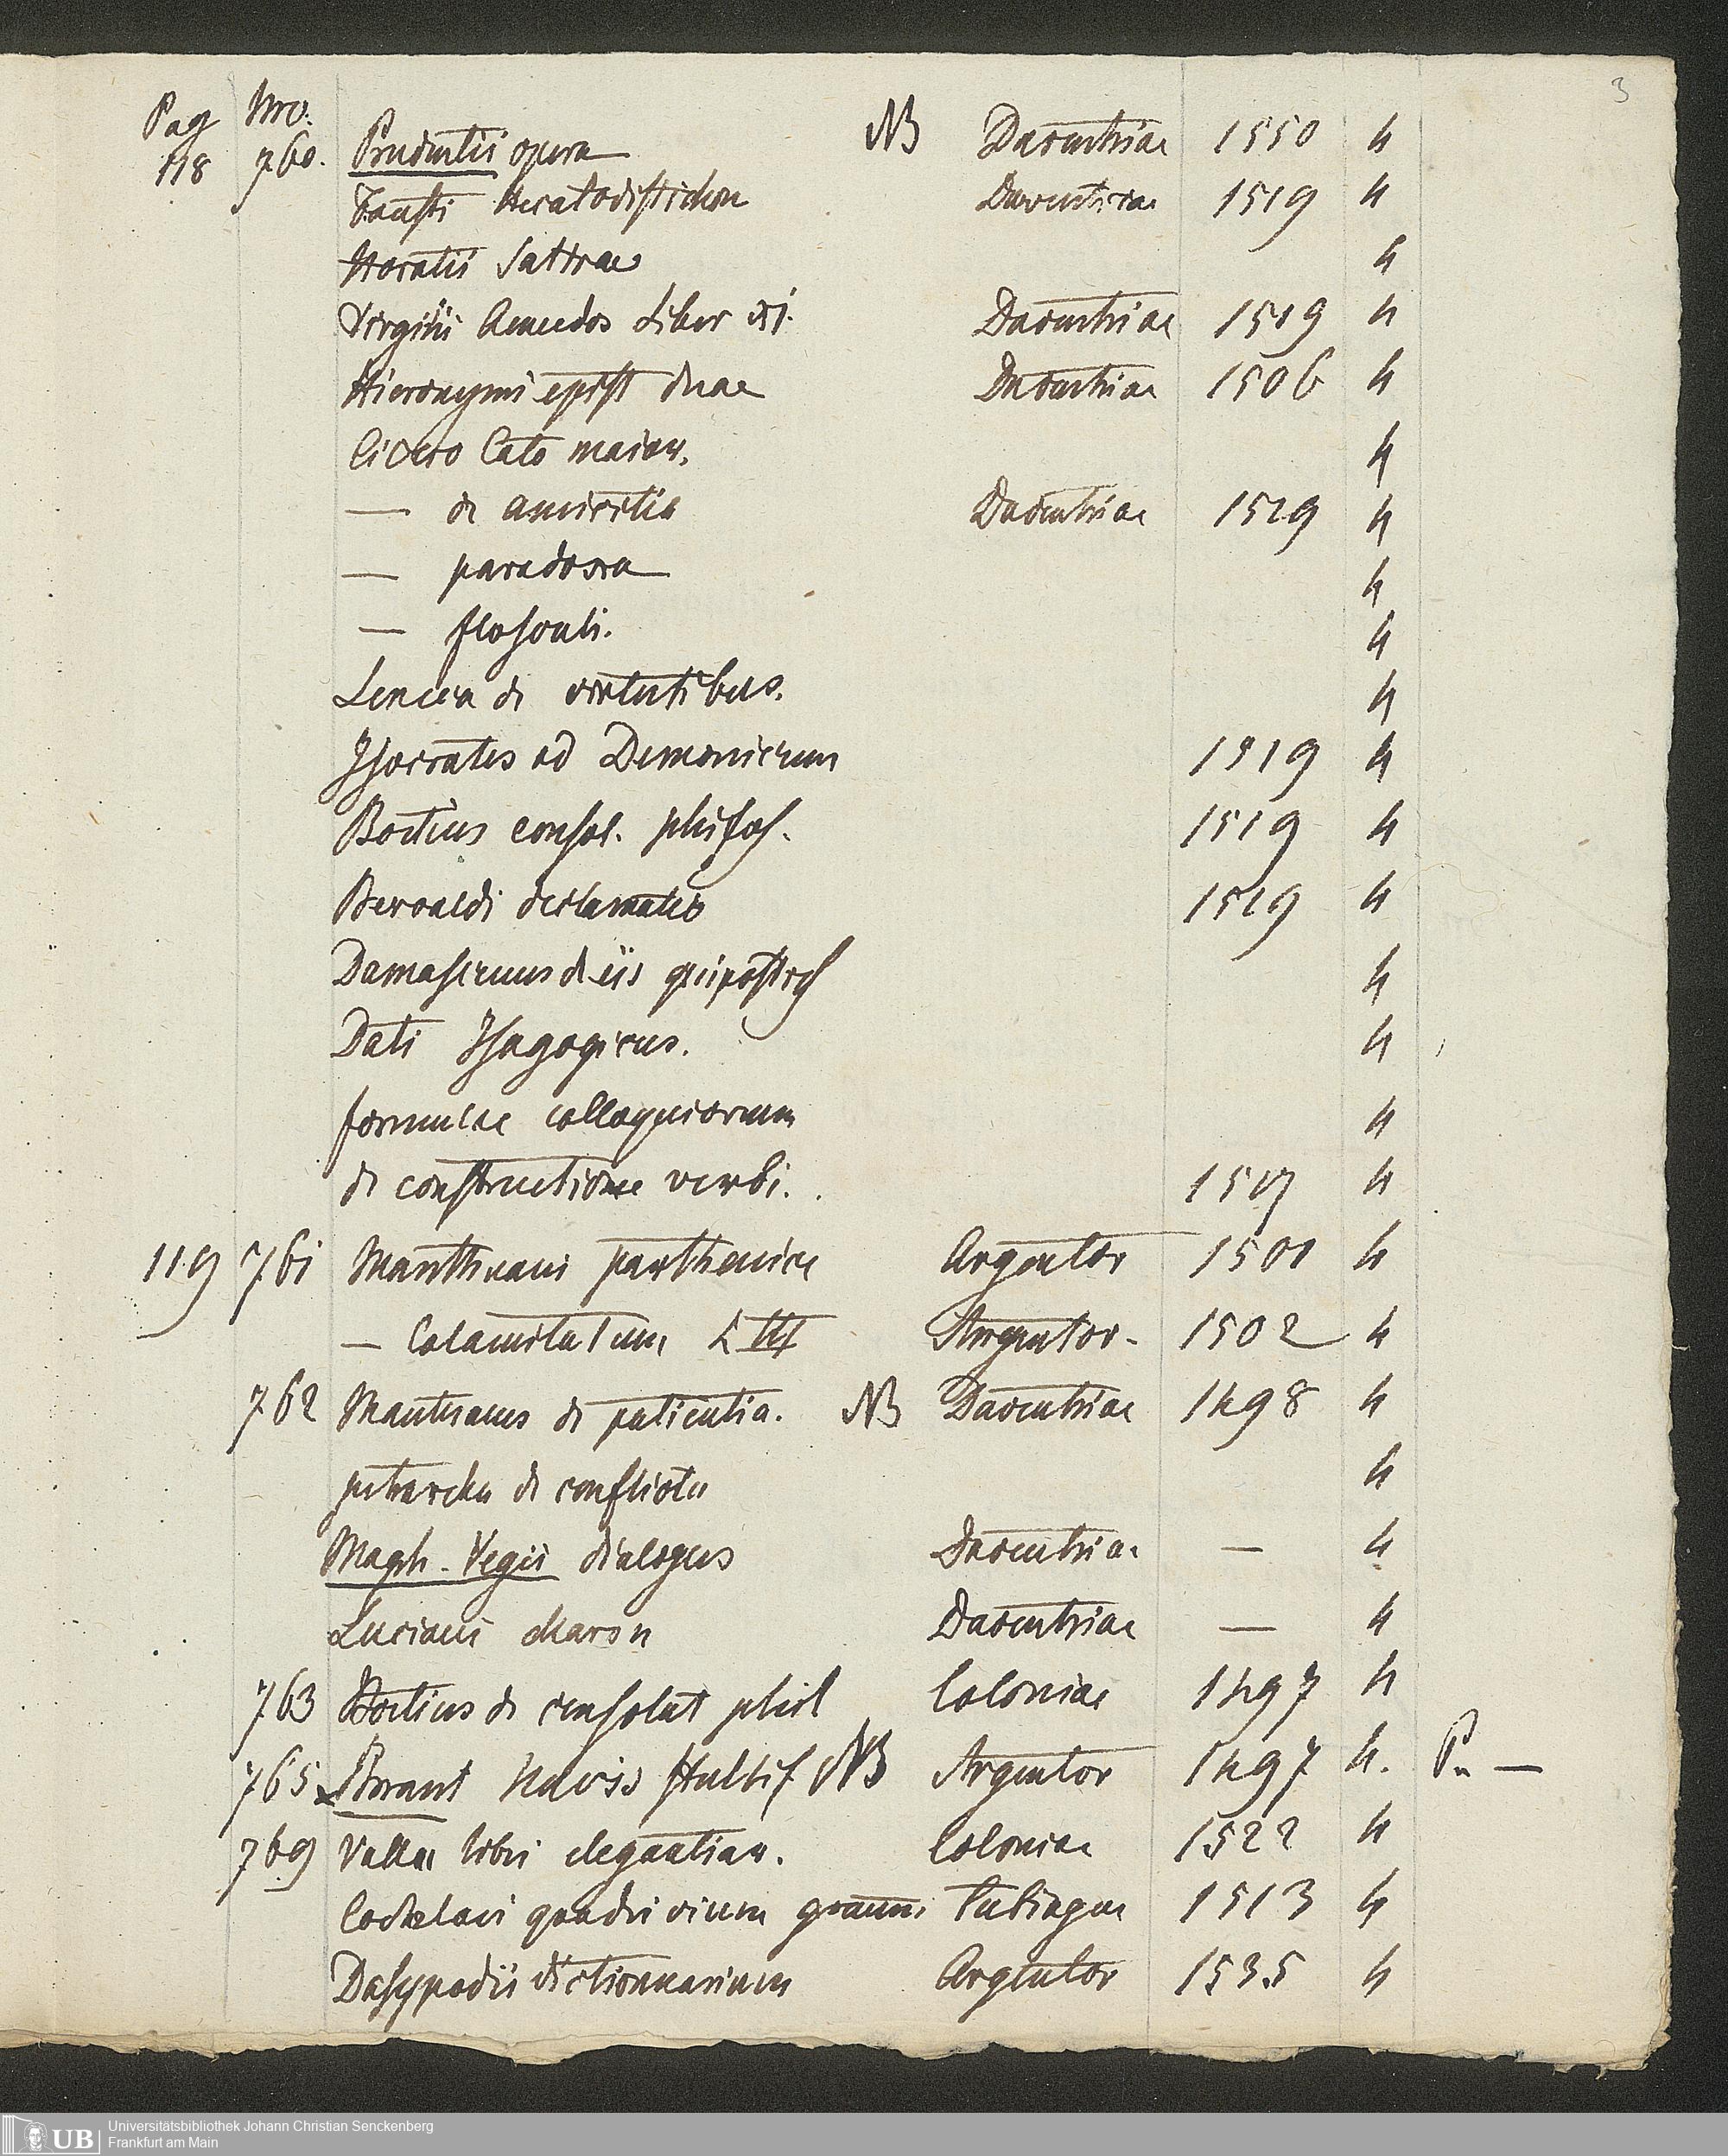 3
Pag Nro.
118 760. Prudentii opera NB Daventriae 1550 4
Fausti Hecatodistichon Daventriae 1519 4
Horatii Satirae 4
Virgilii Aeneidos Liber XI. Daventriae 1519 4
Hieronymi epist duae Daventriae 1506 4
Cicero Cato maior. 4
— de amicitia Daventriae 1529 4
— paradoxa 4
— flosculi. 4
Seneca de virtutibus. 4
Isocrates ad Demonicum 1519 4
Boetius consol. philos. 1519 4
Beroaldi declamatio 1519 4
Damascenus de iis qui 4
Dati Isagogicus. 4
formulae colloquiorum 4
de constructione verbi. 1517 4
119 761 Manthuani parthenice Argentor 1501 4
— Calamitatum L III Argentor. 1502 4
762 Mantuanus de patientia. NB Daventriae 1498 4
petrarcha de conflictu 4
Maph. Vegii dialogus Daventriae — 4
Luciani charon Daventriae — 4
763 Boetius de consolat phil Coloniae 1497 4
765 Brant Navis stultif NB Argentor 1497 4. P. —
769 Vallae libri elegantiar. Coloniae 1522 4
Cochelaei quadrivium gramm. Tubingae 1513 4
Dasypodii dictionnarium Argentor 1535 4
UB Universitätsbibliothek Johann Christian Senckenberg
Frankfurt am Main